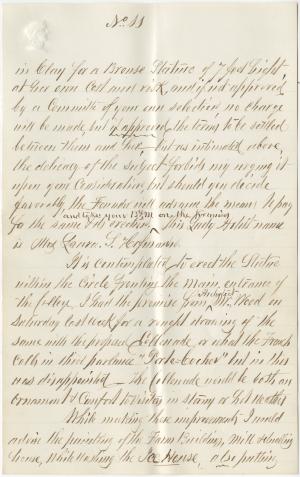 No 11
in Clay for a Bronse Statue of 7 feet hight,
at her own Cost and risk, and if not approved
by a Committe of your own selection, no charge
will be made, but if approved, the terms to be settled
between them and her — but as intimated above,
the delicacy of the subject forbids my urging it
upon your Consideration, but should you decide
favorably, the Founder will advance the means to pay
and take your on the
for the same & its erection, This Lady Artist name
is Miss Laura. S. Hofmann
It is contemplated to erect the Statue
within the Circle fronting the main entrance of
the College, I had the promise from Architect Mr. Wood on
Saturday last week for a rough drawing of the
same with the proposed Collonade, or what the French
calls in their parlance "Porte-Cocher" but in this
was disappointed — the Collonade would be both an
ornament & Comfort to Visitors in stormy or hot weather
While making these improvements I would
advise the painting of the Farm Building, Mill
house, White Washing the Ice House, also putting